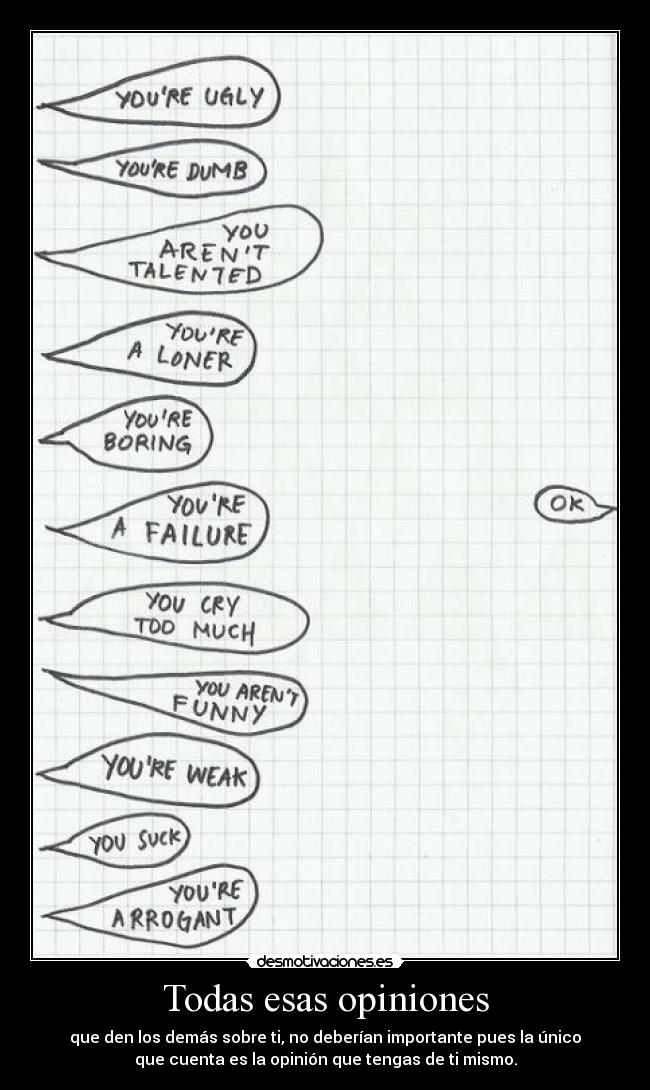 YOU'RE UGLY
YOU'RE DUMB
YOU
AREN'T
TALENTED
YOU'RE
A LONER
YOU'RE
BORING
YOU'RE
A FAILURE
OK
YOU CRY
TOO MUCH
YOU AREN'T
FUNNY
YOU'RE WEAK
YOU SUCK
YOU'RE
ARROGANT
desmotivaciones.es
Todas esas opiniones
que den los demás sobre ti, no deberían importante pues la único
que cuenta es la opinión que tengas de ti mismo.